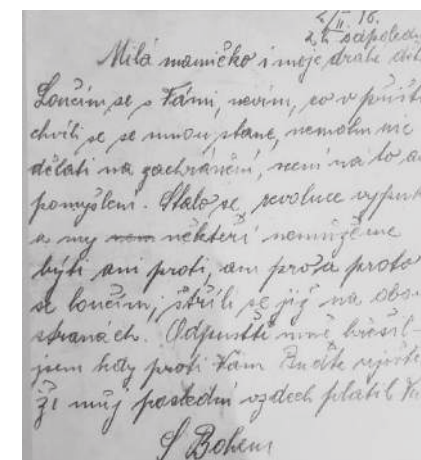 2/II. 18.
2 h odpoledn
Milá mamičko i moje drahé dět
Loučím se s Vámi, nevím, co v příšt
chvíli se se mnou stane, nemohu nic
dělati na zachránění, není na to a
pomyšlení. Stalo se, revoluce vypuk
a my někteří nemůžeme
býti ani proti, ani pro a proto
se loučím, střílí se již na obou
stranách. Odpusťte mně hřešil-
jsem kdy proti Vám Buďte ujiště
že můj poslední vzdech platil Vá
S Bohem